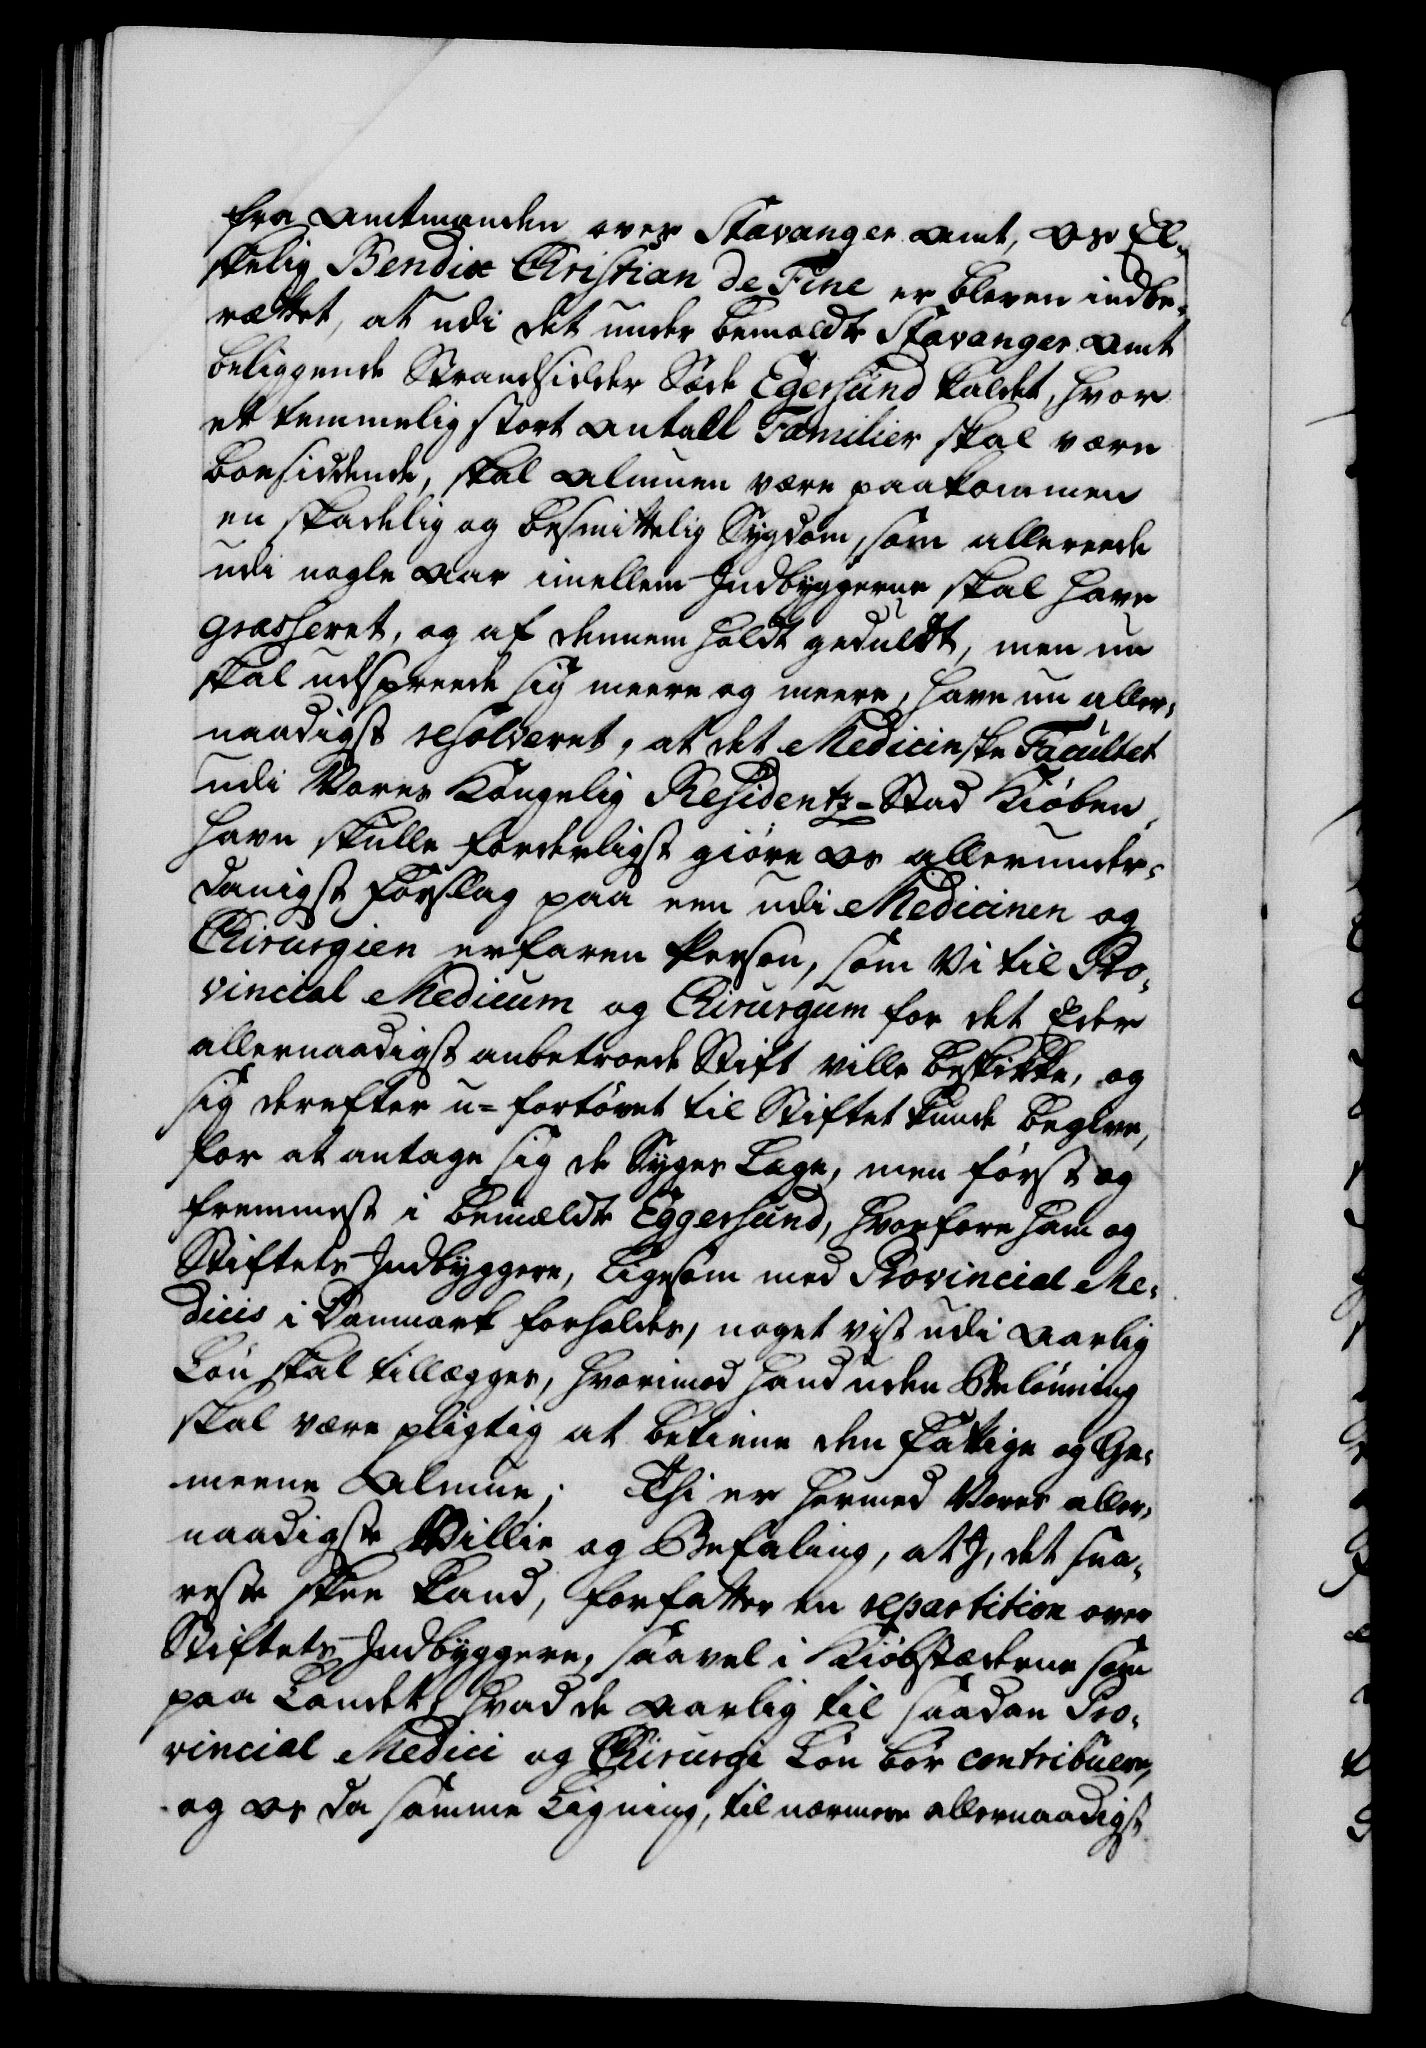 fra Amtmanden over Stavanger Amt, Os El-
skelig Bendix Christian de Fine er bleven indbe-
rættet, at udi det under bemældte Stavanger Amt
beliggende Strandsidder Sæde Egersund kaldet, hvor
et temmelig stort Antall Familier skal være
boesiddende, skal Almuen være paakommen
en skadelig og besmittelig Sygdom, som allereede
udi nogle Aar imellem Indbyggerne skal have
grasseret, og af dennem holdt geduldt, men nu
skal udspreede sig meere og meere, have vi aller-
naadigst resolveret, at det Medicinske Facultet
udi Vores Kongelig Residentz-Stad Kiøben-
havn skulle forderligst giøre Os allerunder-
danigst Forslag paa een udi Medicinen og
Chirurgien erfaren Person, som Vi til Pro-
vincial Medicum og Chirurgum for det Eder
allernaadigst anbetroede Stift ville beskikke, og
sig derefter u-fortøvet til Stiftet kunde begive,
for at antage sig de Syges Læge, men først og
fremmest i bemældte Eggersund, hvorfore ham og
Stiftets Indbyggere, ligesom med Provincial Me-
dicis i Danmark forholdes, noget vist udi Aarlig
Løn skal tillægges, hvorimod hand uden Belønning
skal være pligtig at betiene den fattige og Ge-
meene Almue; Thi er hermed Vores aller-
naadigste Villie og Befaling, at I, det sna-
reste skee kand, forfatter en repartition over
Stiftets Indbyggere, saavel i Kiøbstæderne som
paa Landet, hvad de Aarlig til saadan Pro-
vincial Medici og Chirurgi Løn bør contribuere,
og Os da samme Ligning, til nærmere allernaadigst